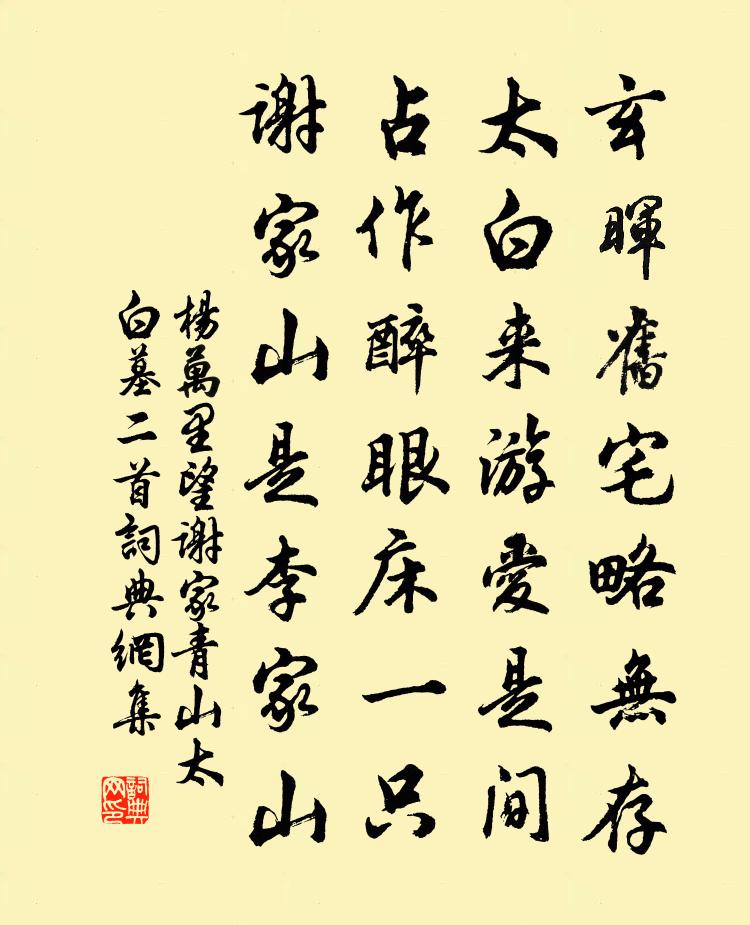 玄暉舊宅略無存
太白来游愛是间
占作醉眼床一只
谢家山是李家山
楊萬里望谢家青山太
白墓二首詞典網集
詞典
网印